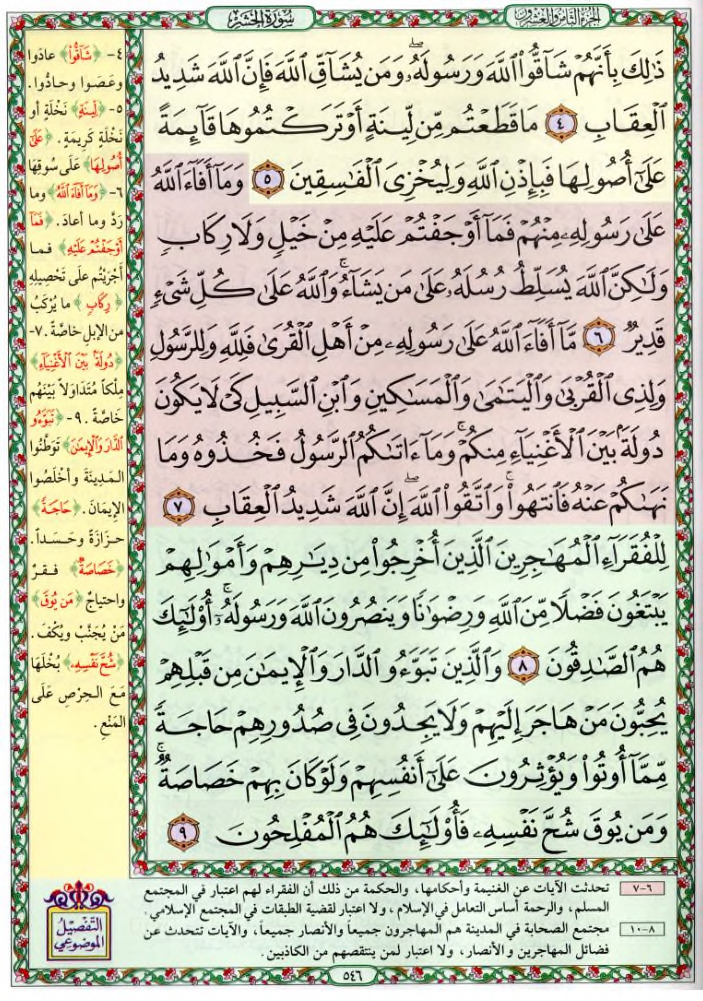 الجزء الثامن والعشرون
سورة الحشر
ذَٰلِكَ بِأَنَّهُمْ شَآقُّوا۟ ٱللَّهَ وَرَسُولَهُۥ ۖ وَمَن يُشَآقِّ ٱللَّهَ فَإِنَّ ٱللَّهَ شَدِيدُ
ٱلْعِقَابِ ٤ مَا قَطَعْتُم مِّن لِّينَةٍ أَوْ تَرَكْتُمُوهَا قَآئِمَةً
عَلَىٰٓ أُصُولِهَا فَبِإِذْنِ ٱللَّهِ وَلِيُخْزِىَ ٱلْفَـٰسِقِينَ ٥ وَمَآ أَفَآءَ ٱللَّهُ
عَلَىٰ رَسُولِهِۦ مِنْهُمْ فَمَآ أَوْجَفْتُمْ عَلَيْهِ مِنْ خَيْلٍ وَلَا رِكَابٍ
وَلَـٰكِنَّ ٱللَّهَ يُسَلِّطُ رُسُلَهُۥ عَلَىٰ مَن يَشَآءُ ۚ وَٱللَّهُ عَلَىٰ كُلِّ شَىْءٍ
قَدِيرٌ ٦ مَّآ أَفَآءَ ٱللَّهُ عَلَىٰ رَسُولِهِۦ مِنْ أَهْلِ ٱلْقُرَىٰ فَلِلَّهِ وَلِلرَّسُولِ
وَلِذِى ٱلْقُرْبَىٰ وَٱلْيَتَـٰمَىٰ وَٱلْمَسَـٰكِينِ وَٱبْنِ ٱلسَّبِيلِ كَىْ لَا يَكُونَ
دُولَةًۢ بَيْنَ ٱلْأَغْنِيَآءِ مِنكُمْ ۚ وَمَآ ءَاتَىٰكُمُ ٱلرَّسُولُ فَخُذُوهُ وَمَا
نَهَىٰكُمْ عَنْهُ فَٱنتَهُوا۟ ۚ وَٱتَّقُوا۟ ٱللَّهَ ۖ إِنَّ ٱللَّهَ شَدِيدُ ٱلْعِقَابِ ٧
لِلْفُقَرَآءِ ٱلْمُهَـٰجِرِينَ ٱلَّذِينَ أُخْرِجُوا۟ مِن دِيَـٰرِهِمْ وَأَمْوَٰلِهِمْ
يَبْتَغُونَ فَضْلًا مِّنَ ٱللَّهِ وَرِضْوَٰنًا وَيَنصُرُونَ ٱللَّهَ وَرَسُولَهُۥٓ ۚ أُو۟لَـٰٓئِكَ
هُمُ ٱلصَّـٰدِقُونَ ٨ وَٱلَّذِينَ تَبَوَّءُو ٱلدَّارَ وَٱلْإِيمَـٰنَ مِن قَبْلِهِمْ
يُحِبُّونَ مَنْ هَاجَرَ إِلَيْهِمْ وَلَا يَجِدُونَ فِى صُدُورِهِمْ حَاجَةً
مِّمَّآ أُوتُوا۟ وَيُؤْثِرُونَ عَلَىٰٓ أَنفُسِهِمْ وَلَوْ كَانَ بِهِمْ خَصَاصَةٌ ۚ
وَمَن يُوقَ شُحَّ نَفْسِهِۦ فَأُو۟لَـٰٓئِكَ هُمُ ٱلْمُفْلِحُونَ ٩
٤- ﴿شَآقُّوا﴾ عادَوا
وعَصَوا وحادُّوا.
٥- ﴿لِينَةٍ﴾ نَخْلَةٍ أو
نَخْلَةٍ كَرِيمَةٍ. ﴿عَلَىٰ
أُصُولِهَا﴾ عَلَى سُوقِهَا
٦- ﴿وَمَآ أَفَآءَ ٱللَّهُ﴾ وما
رَدَّ وما أعادَ. ﴿فَمَآ
أَوْجَفْتُمْ عَلَيْهِ﴾ فـمـا
أَجْرَيْتُم علَى تَحْصيلِهِ
﴿رِكَابٍ﴾ ما يُرْكَبُ
من الإبلِ خاصَّة. ٧-
﴿دُولَةً بَيْنَ الْأَغْنِيَآءِ﴾
مِلْكاً مُتَداوَلاً بَيْنَهُم
خَاصَّة. ٩- ﴿تَبَوَّءُو
الدَّارَ وَالْإِيمَانَ﴾ تَوَطَّنُوا
المَدِينَةَ وأخْلَصُوا
الإيمَانَ. ﴿حَاجَةً﴾
حزازَةً وحَسَداً.
﴿خَصَاصَةٌ﴾ فـقـرٌ
واحتياجٌ ﴿مَن يُوقَ﴾
مَنْ يُجنَّبْ ويُكْفَ.
﴿شُحَّ نَفْسِهِ﴾ بُخْلَهَا
مَعَ الحِرْصِ عَلَى
المَنْعِ.
٦-٧ تحدثت الآيات عن الغنيمة وأحكامها، والحكمة من ذلك أن الفقراء لهم اعتبار في المجتمع
المسلم، والرحمة أساس التعامل في الإسلام، ولا اعتبار لقضية الطبقات في المجتمع الإسلامي.
٨-١٠ مجتمع الصحابة في المدينة هم المهاجرون جميعاً والأنصار جميعاً، والآيات تتحدث عن
فضائل المهاجرين والأنصار، ولا اعتبار لمن ينتقصهم من الكاذبين.
التفصيل
الموضوعي
٥٤٦